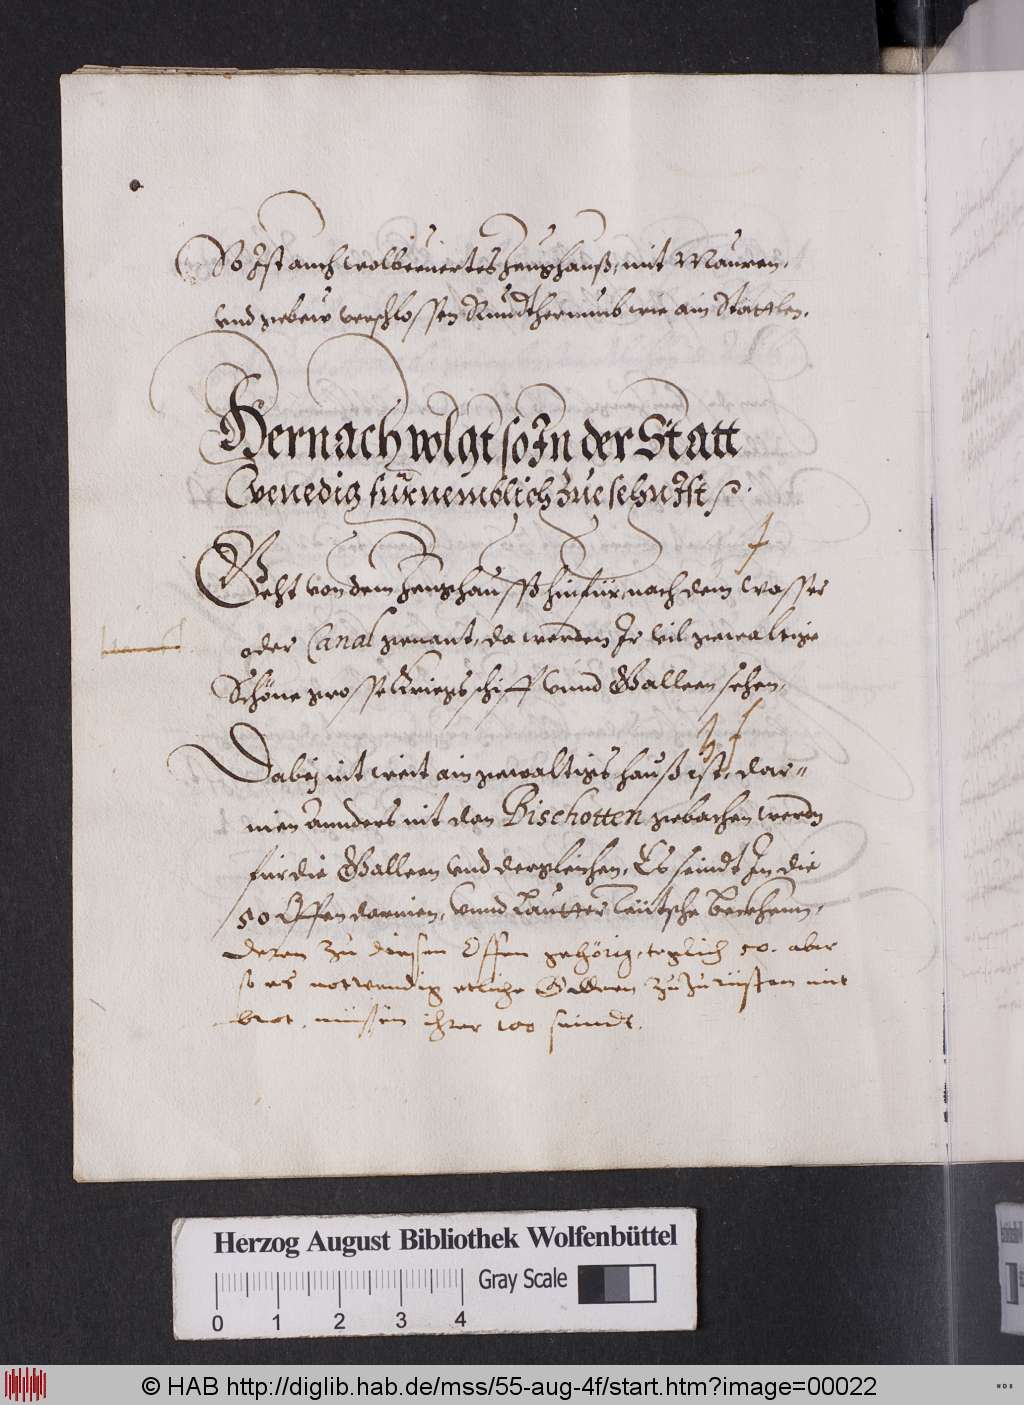 So Ist auch wolberiertes Zeughauß, mit Mauren,
vnd gebew verschlossen Rundtherumb wie ain Stättlen.
Hernach volgt so In der Statt
Venedig fürnemblich zue sehn Ist
Geht von dem Zeughauss hinfür, nach dem Wasser
oder Canal genant, da werden Ir vil gewaltige
Schöne grosse Kriegs schiff vnnd Galleen sehen,
Dabej nit weit ain gewaltigs hauß ist, dar=
inen annders nit dan Bischotten gebachen werdn
für die Galleen vnd dergleichen, Es seindt In die
50 Öffen darinen, vnnd lautter Teütsche beckhenn,
deren zu diesen Öffen gehörig, teglich 50. aber
so es notwendig etliche Galleen zuzurüsten mit
brot, müssen ihrer 100 seindt.
Herzog August Bibliothek Wolfenbüttel
0 1 2 3 4
Gray Scale
© HAB http://diglib.hab.de/mss/55-aug-4f/start.htm?image=00022